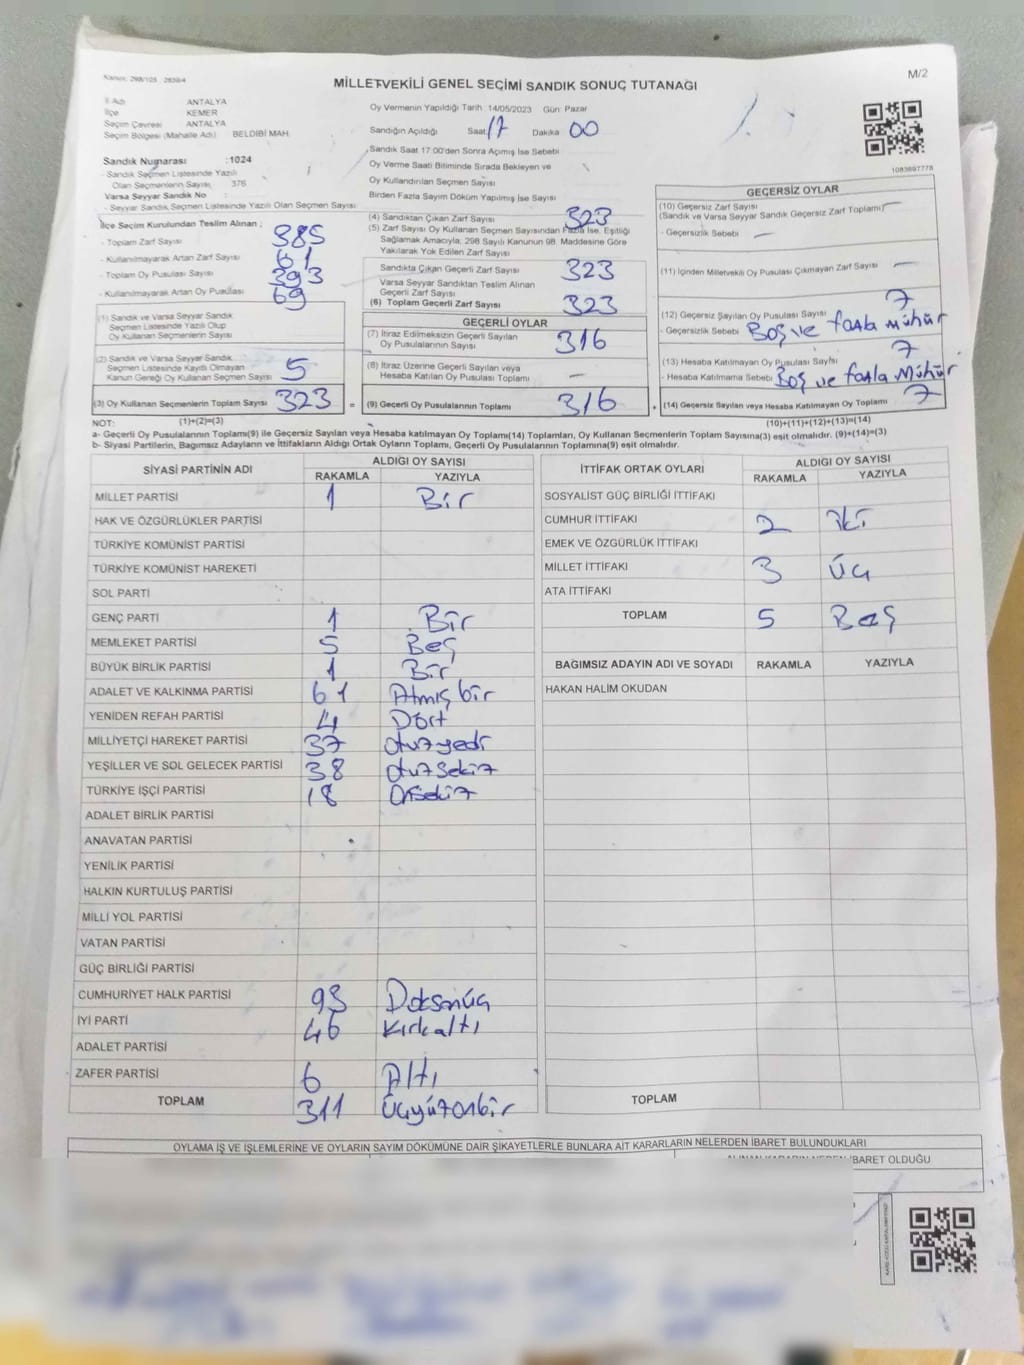 Kanun: 298/105 2839/4
M/2
MİLLETVEKİLİ GENEL SEÇİMİ SANDIK SONUÇ TUTANAĞI
İl Adı ANTALYA
İlçe KEMER
Seçim Çevresi ANTALYA
Seçim Bölgesi (Mahalle Adı) BELDİBİ MAH.
Sandık Numarası :1024
- Sandık Seçmen Listesinde Yazılı
Olan Seçmenlerin Sayısı 376
Varsa Seyyar Sandık No :
- Seyyar Sandık Seçmen Listesinde Yazılı Olan Seçmen Sayısı
Oy Vermenin Yapıldığı Tarih 14/05/2023 Gün: Pazar
Sandığın Açıldığı Saat 17 Dakika 00
Sandık Saat 17:00'den Sonra Açımış İse Sebebi
Oy Verme Saati Bitiminde Sırada Bekleyen ve
Oy Kullandırılan Seçmen Sayısı
Birden Fazla Sayım Döküm Yapılmış İse Sayısı
1083697778
İlçe Seçim Kurulundan Teslim Alınan ;
- Toplam Zarf Sayısı 385
- Kullanılmayarak Artan Zarf Sayısı 61
- Toplam Oy Pusulası Sayısı 393
- Kullanılmayarak Artan Oy Pusulası 69
(1) Sandık ve Varsa Seyyar Sandık
Seçmen Listesinde Yazılı Olup
Oy Kullanan Seçmenlerin Sayısı
(2) Sandık ve Varsa Seyyar Sandık
Seçmen Listesinde Kayıtlı Olmayan
Kanun Gereği Oy Kullanan Seçmen Sayısı 5
(3) Oy Kullanan Seçmenlerin Toplam Sayısı 323 =
(1)+(2)=(3)
(4) Sandıktan Çıkan Zarf Sayısı 323
(5) Zarf Sayısı Oy Kullanan Seçmen Sayısından Fazla İse, Eşitliği
Sağlamak Amacıyla, 298 Sayılı Kanunun 98. Maddesine Göre
Yakılarak Yok Edilen Zarf Sayısı
Sandıkta Çıkan Geçerli Zarf Sayısı 323
Varsa Seyyar Sandıktan Teslim Alınan
Geçerli Zarf Sayısı
(6) Toplam Geçerli Zarf Sayısı 323
GEÇERLİ OYLAR
(7) İtiraz Edilmeksizin Geçerli Sayılan
Oy Pusulalarının Sayısı 316
(8) İtiraz Üzerine Geçerli Sayılan veya
Hesaba Katılan Oy Pusulası Toplamı —
(9) Geçerli Oy Pusulalarının Toplamı 316 +
GEÇERSİZ OYLAR
(10) Geçersiz Zarf Sayısı
(Sandık ve Varsa Seyyar Sandık Geçersiz Zarf Toplamı) —
- Geçersizlik Sebebi —
(11) İçinden Milletvekili Oy Pusulası Çıkmayan Zarf Sayısı —
(12) Geçersiz Sayılan Oy Pusulası Sayısı 7
- Geçersizlik Sebebi Boş ve fazla mühür
(13) Hesaba Katılmayan Oy Pusulası Sayısı 7
- Hesaba Katılmama Sebebi Boş ve fazla Mühür
(14) Geçersiz Sayılan veya Hesaba Katılmayan Oy Toplamı 7
(10)+(11)+(12)+(13)=(14)
NOT:
a- Geçerli Oy Pusulalarının Toplamı(9) ile Geçersiz Sayılan veya Hesaba katılmayan Oy Toplamı(14) Toplamları, Oy Kullanan Seçmenlerin Toplam Sayısına(3) eşit olmalıdır. (9)+(14)=(3)
b- Siyasi Partilerin, Bağımsız Adayların ve İttifakların Aldığı Ortak Oyların Toplamı, Geçerli Oy Pusulalarının Toplamına(9) eşit olmalıdır.
SİYASİ PARTİNİN ADI ALDIĞI OY SAYISI
RAKAMLA YAZIYLA
MİLLET PARTİSİ 1 Bir
HAK VE ÖZGÜRLÜKLER PARTİSİ
TÜRKİYE KOMÜNİST PARTİSİ
TÜRKİYE KOMÜNİST HAREKETİ
SOL PARTİ
GENÇ PARTİ 1 Bir
MEMLEKET PARTİSİ 5 Beş
BÜYÜK BİRLİK PARTİSİ 1 Bir
ADALET VE KALKINMA PARTİSİ 61 Atmış bir
YENİDEN REFAH PARTİSİ 4 Dört
MİLLİYETÇİ HAREKET PARTİSİ 37 otuzyedi
YEŞİLLER VE SOL GELECEK PARTİSİ 38 otuzsekiz
TÜRKİYE İŞÇİ PARTİSİ 18 Onsekiz
ADALET BİRLİK PARTİSİ
ANAVATAN PARTİSİ
YENİLİK PARTİSİ
HALKIN KURTULUŞ PARTİSİ
MİLLİ YOL PARTİSİ
VATAN PARTİSİ
GÜÇ BİRLİĞİ PARTİSİ
CUMHURİYET HALK PARTİSİ 93 Doksanüç
İYİ PARTİ 46 Kırkaltı
ADALET PARTİSİ
ZAFER PARTİSİ 6 Altı
TOPLAM 311 Üçyüzonbir
İTTİFAK ORTAK OYLARI ALDIĞI OY SAYISI
RAKAMLA YAZIYLA
SOSYALİST GÜÇ BİRLİĞİ İTTİFAKI
CUMHUR İTTİFAKI 2 iki
EMEK VE ÖZGÜRLÜK İTTİFAKI
MİLLET İTTİFAKI 3 üç
ATA İTTİFAKI
TOPLAM 5 Beş
BAĞIMSIZ ADAYIN ADI VE SOYADI RAKAMLA YAZIYLA
HAKAN HALİM OKUDAN
TOPLAM
OYLAMA İŞ VE İŞLEMLERİNE VE OYLARIN SAYIM DÖKÜMÜNE DAİR ŞİKAYETLERLE BUNLARA AİT KARARLARIN NELERDEN İBARET BULUNDUKLARI
ALINAN KARARIN NEDEN İBARET OLDUĞU